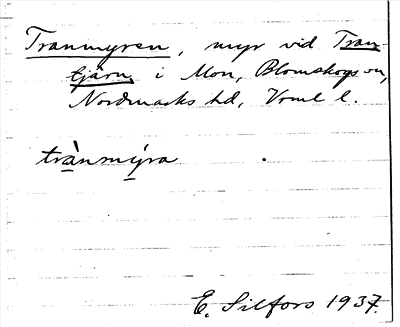 Tranmyren, myr vid Tran-
tjärn i Mon, Blomskogs sn,
Nordmarks hd, Vrml l.
trànmýra
E. Silfors 1937.